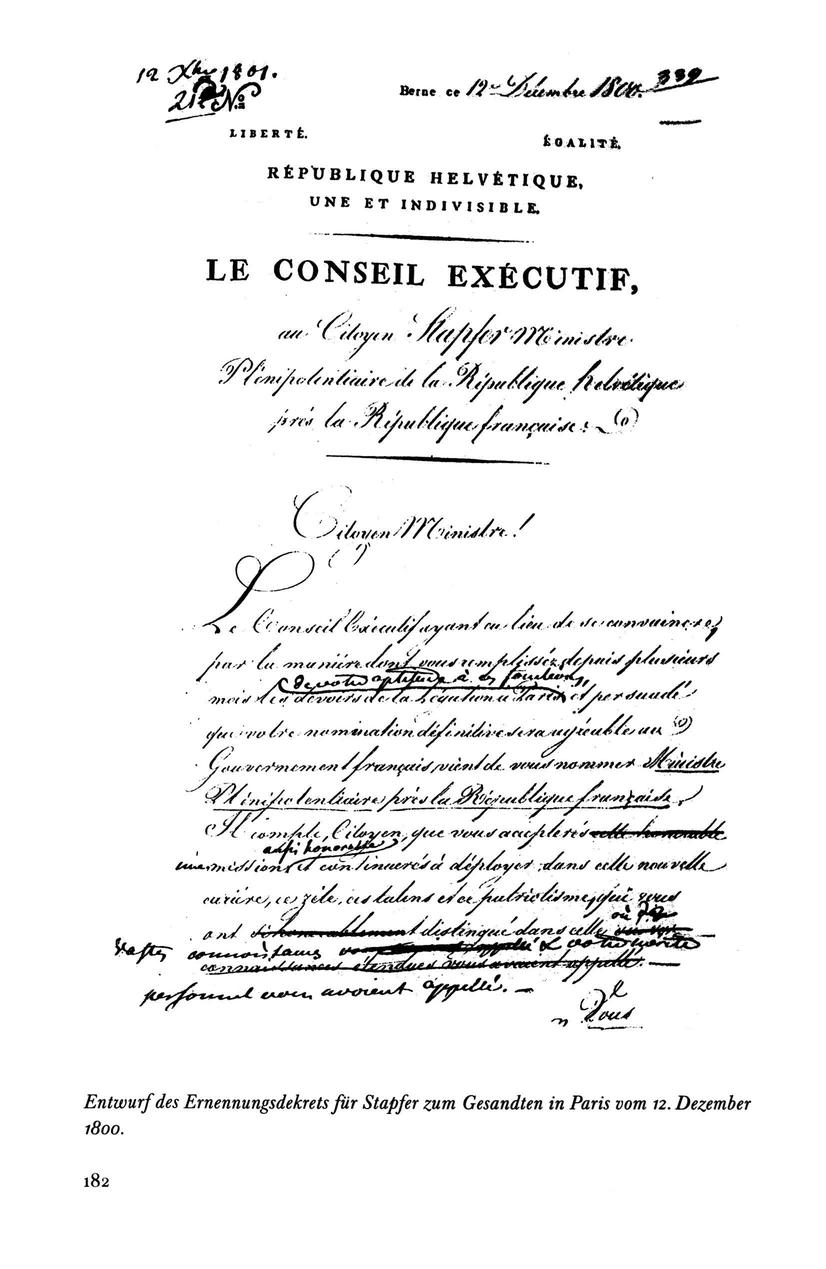 12 Xbre 1801.
Berne ce 12e Décembre 1800. 339
212 No
LIBERTÉ.
ÉGALITÉ,
RÉPUBLIQUE HELVÉTIQUE,
UNE ET INDIVISIBLE.
LE CONSEIL EXÉCUTIF,
au Citoyen Stapfer Ministre
Plénipotentiaire de la République helvétique
près la République française.
Citoyen Ministre!
Le Conseil Exécutif ayant eu lieu de se convaincre,
par la manière dont vous remplissés depuis plusieurs
de votre aptitude à ces fonctions,
mois les devoirs de la Légation à Paris, et persuadé
que votre nomination définitive sera agréable au
Gouvernement français, vient de vous nommer Ministre
Plénipotentiaire près la République française.
Il compte, Citoyen, que vous accepterés cette honorable
aussi honorable
une mission, et continuerés à déployer, dans cette nouvelle
carière, ce zèle, ces talens et ce patriotisme, qui vous
où
ont si honorablement distingué dans celle
vastes connoissances appellé & votre mérite
connaissances étendues vous avoient appellé.
personnel vous avoient appellé. —
Vous
Entwurf des Ernennungsdekrets für Stapfer zum Gesandten in Paris vom 12. Dezember
1800.
182